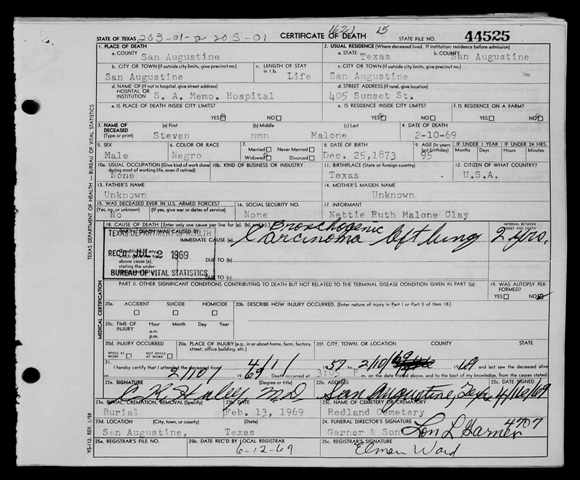 1620 15
STATE OF TEXAS 203-01-2 203-01 CERTIFICATE OF DEATH STATE FILE NO. 44525
1. PLACE OF DEATH 2. USUAL RESIDENCE (Where deceased lived. If institution: residence before admission)
a. COUNTY San Augustine a. STATE Texas b. COUNTY San Augustine
b. CITY OR TOWN (If outside city limits, give precinct no.) c. LENGTH OF STAY in 1 b. c. CITY OR TOWN (If outside city limits, give precinct no.)
San Augustine Life San Augustine
d. NAME OF (If not in hospital, give street address) d. STREET ADDRESS (If rural, give location)
HOSPITAL OR INSTITUTION S. A. Memo. Hospital 405 Sunset St.
e. IS PLACE OF DEATH INSIDE CITY LIMITS? e. IS RESIDENCE INSIDE CITY LIMITS? f. IS RESIDENCE ON A FARM?
YES NO YES NO YES NO
3. NAME OF DECEASED (Type or print) (a) First (b) Middle (c) Last 4. DATE OF DEATH
Steven nmn Malone 2-10-69
5. SEX 6. COLOR OR RACE 7. Married Never Married 8. DATE OF BIRTH 9. AGE IF UNDER 1 YEAR IF UNDER 24 HRS.
Male Negro Widowed Divorced Dec. 25, 1873 95
10a. USUAL OCCUPATION (Give kind of work done during most of working life, even if retired) 10b. KIND OF BUSINESS OR INDUSTRY 11. BIRTHPLACE (State or foreign country) 12. CITIZEN OF WHAT COUNTRY?
None Texas U.S.A.
13. FATHER'S NAME 14. MOTHER'S MAIDEN NAME
Unknown Unknown
15. WAS DECEASED EVER IN U.S. ARMED FORCES? 16. SOCIAL SECURITY NO. 17. INFORMANT
(Yes, no, or unknown) (If yes, give war or dates of service)
No None Nettie Ruth Malone Clay
18. CAUSE OF DEATH INTERVAL BETWEEN ONSET AND DEATH
IMMEDIATE CAUSE (a) Bronchogenic Carcinoma left lung 2 yrs.
TEXAS DEPARTMENT OF HEALTH
REC'D JUL 2 1969
BUREAU OF VITAL STATISTICS
DUE TO (b)
DUE TO (c)
PART II. OTHER SIGNIFICANT CONDITIONS CONTRIBUTING TO DEATH BUT NOT RELATED TO THE TERMINAL DISEASE CONDITION GIVEN IN PART I(a) 19. WAS AUTOPSY PERFORMED?
YES NO
20a. ACCIDENT SUICIDE HOMICIDE 20b. DESCRIBE HOW INJURY OCCURRED. (Enter nature of injury in Part I or Part II of item 18)
20c. TIME OF INJURY Hour Month Day Year
a.m.
p.m.
20d. INJURY OCCURRED 20e. PLACE OF INJURY (e.g., in or about home, farm, factory, street, office building, etc.) 20f. CITY, TOWN, OR LOCATION COUNTY STATE
21. I hereby certify that I attended the deceased
22a. SIGNATURE (Degree or title) 22b. ADDRESS 22c. DATE SIGNED
MD San Augustine, Tex
23a. BURIAL, CREMATION, REMOVAL (Specify)
Burial Feb. 13, 1969 Redland Cemetery
23d. LOCATION (City, town, or county) (State) 24. FUNERAL DIRECTOR'S SIGNATURE 4707
San Augustine, Texas Garner & Son Lon L Garner
25a. REGISTRAR'S FILE NO. 25b. DATE REC'D BY LOCAL REGISTRAR 25c. REGISTRAR'S SIGNATURE
6-12-69 Elman Ward
TEXAS DEPARTMENT OF HEALTH — BUREAU OF VITAL STATISTICS
MEDICAL CERTIFICATION